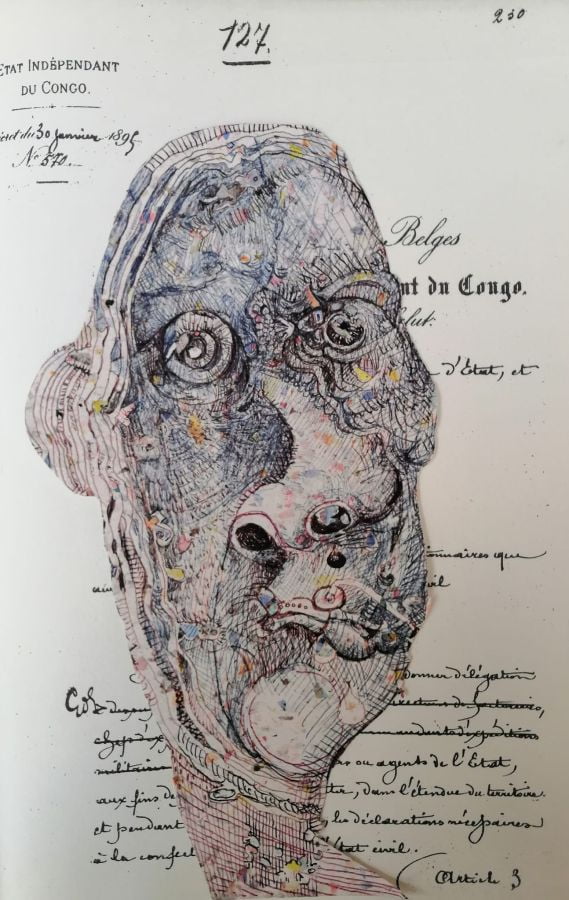 127.
230
ETAT INDÉPENDANT
DU CONGO.
du 30 janvier 1895
No 570.
Belges
nt du Congo.
lut.
d'Etat, et
onnaires que
vil
donner délégation
chefs d'ex
militair
rs ou agents de l'Etat,
aux fins de ter, dans l'étendue du territoire
et pendant les déclarations nécessaires
à la confect état civil.
Article 3